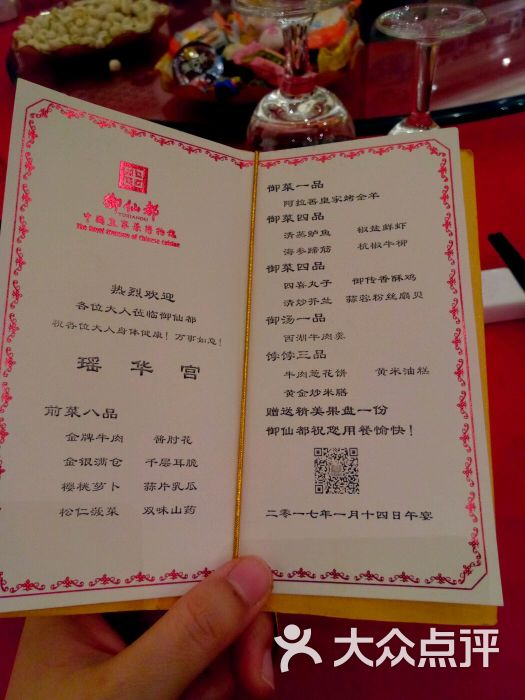 御仙都
YUXIANDU
中国皇家菜博物馆
The Royal Museum of Chinese Cuisine
热烈欢迎
各位大人莅临御仙都
祝各位大人身体健康！万事如意！
瑶 华 宫
前菜八品
金牌牛肉 酱肘花
金银满仓 千层耳脆
樱桃萝卜 蒜片乳瓜
松仁菠菜 双味山药
御菜一品
阿拉善皇家烤全羊
御菜四品
清蒸鲈鱼 椒盐鲜虾
海参蹄筋 杭椒牛柳
御菜四品
四喜丸子 御传香酥鸡
清炒芥兰 蒜蓉粉丝扇贝
御汤一品
西湖牛肉羹
饽饽三品
牛肉葱花饼 黄米油糕
黄金炒米膳
赠送精美果盘一份
御仙都祝您用餐愉快！
二零一七年一月十四日午宴
大众点评